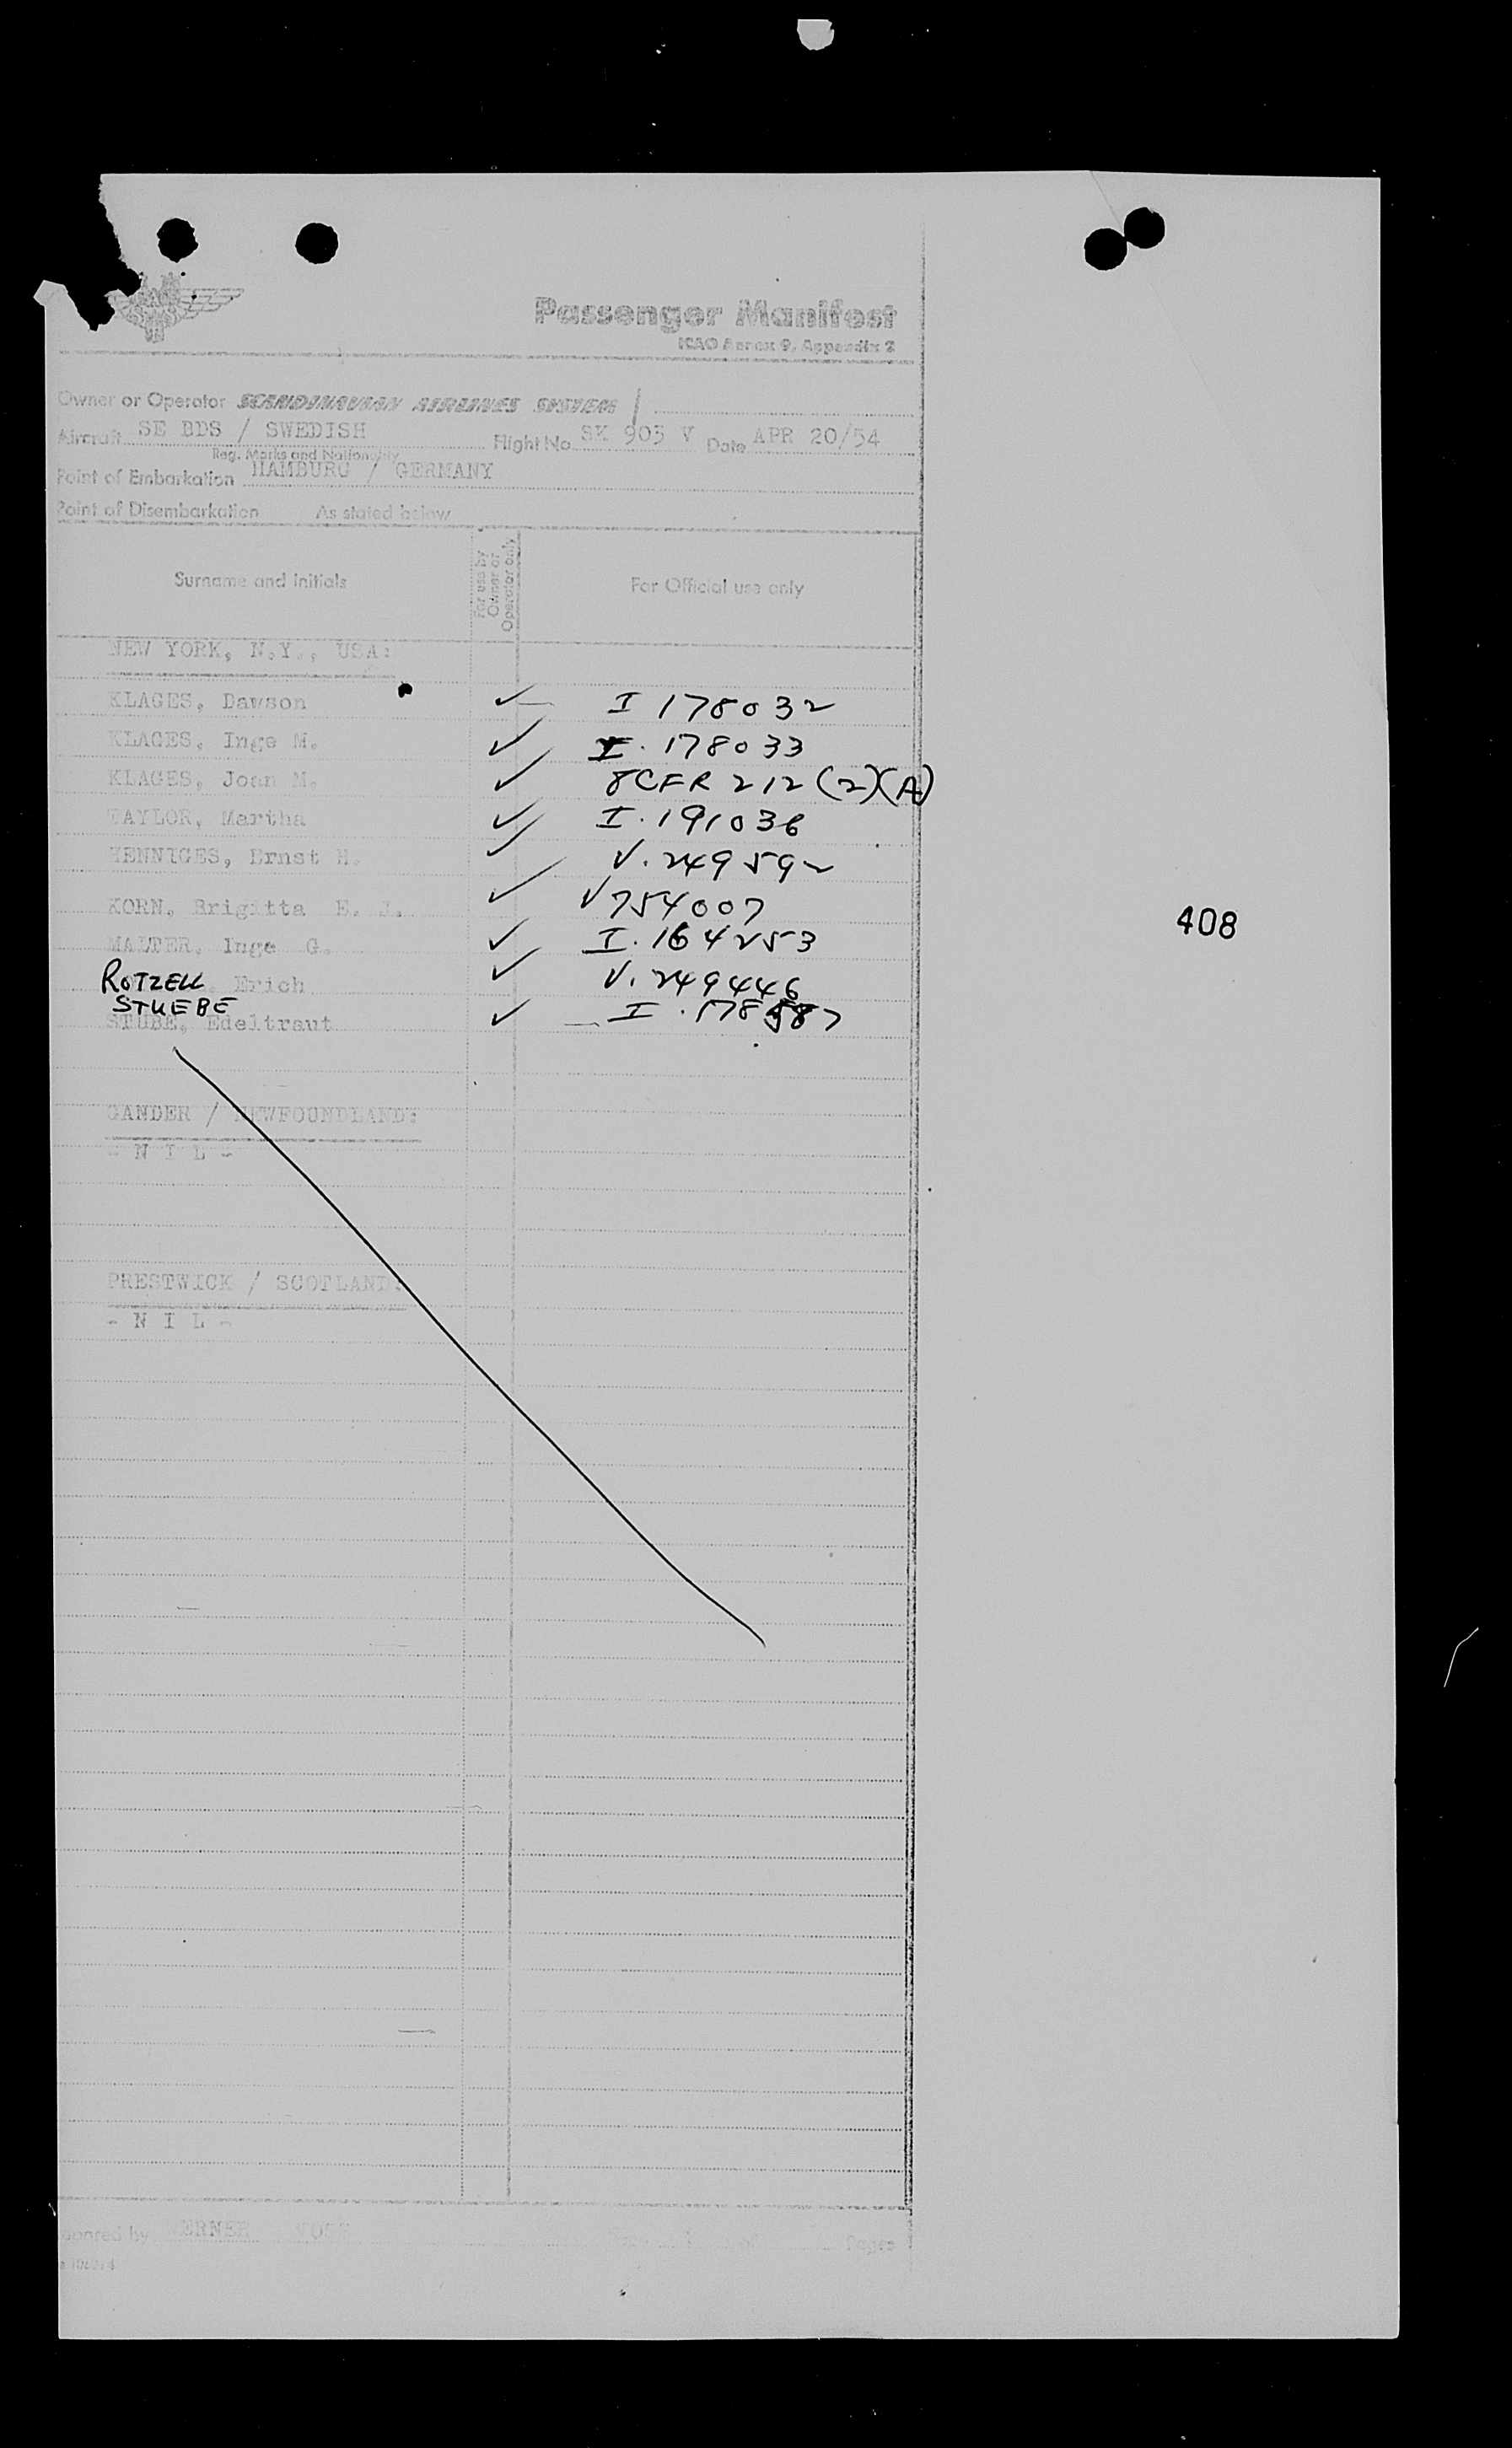 Passenger Manifest
ICAO Annex 9, Appendix 2
Owner or Operator SCANDINAVIAN AIRLINES SYSTEM
Aircraft SE BDS / SWEDISH Flight No. SK 903 V Date APR 20/54
Reg. Marks and Nationality
Point of Embarkation HAMBURG / GERMANY
Point of Disembarkation As stated below
Surname and initials For use by Owner or Operator only For Official use only
NEW YORK, N.Y., USA:
KLAGES, Dawson ✓ I 178032
KLAGES, Inge M. ✓ I. 178033
KLAGES, Joan M. ✓ 8CFR 212 (2)(A)
TAYLOR, Martha ✓ I. 191036
HENNIGES, Ernst H. ✓ V. 249592
KORN, Brigitta E. J. ✓ V754007
408
MALTER, Inge G. ✓ I. 164253
ROTZELL Erich ✓ V. 249446
STUEBE
STUBE, Edeltraut ✓ I. 178587
GANDER / NEWFOUNDLAND:
- N I L -
PRESTWICK / SCOTLAND:
- N I L -
by WERNER
Pages